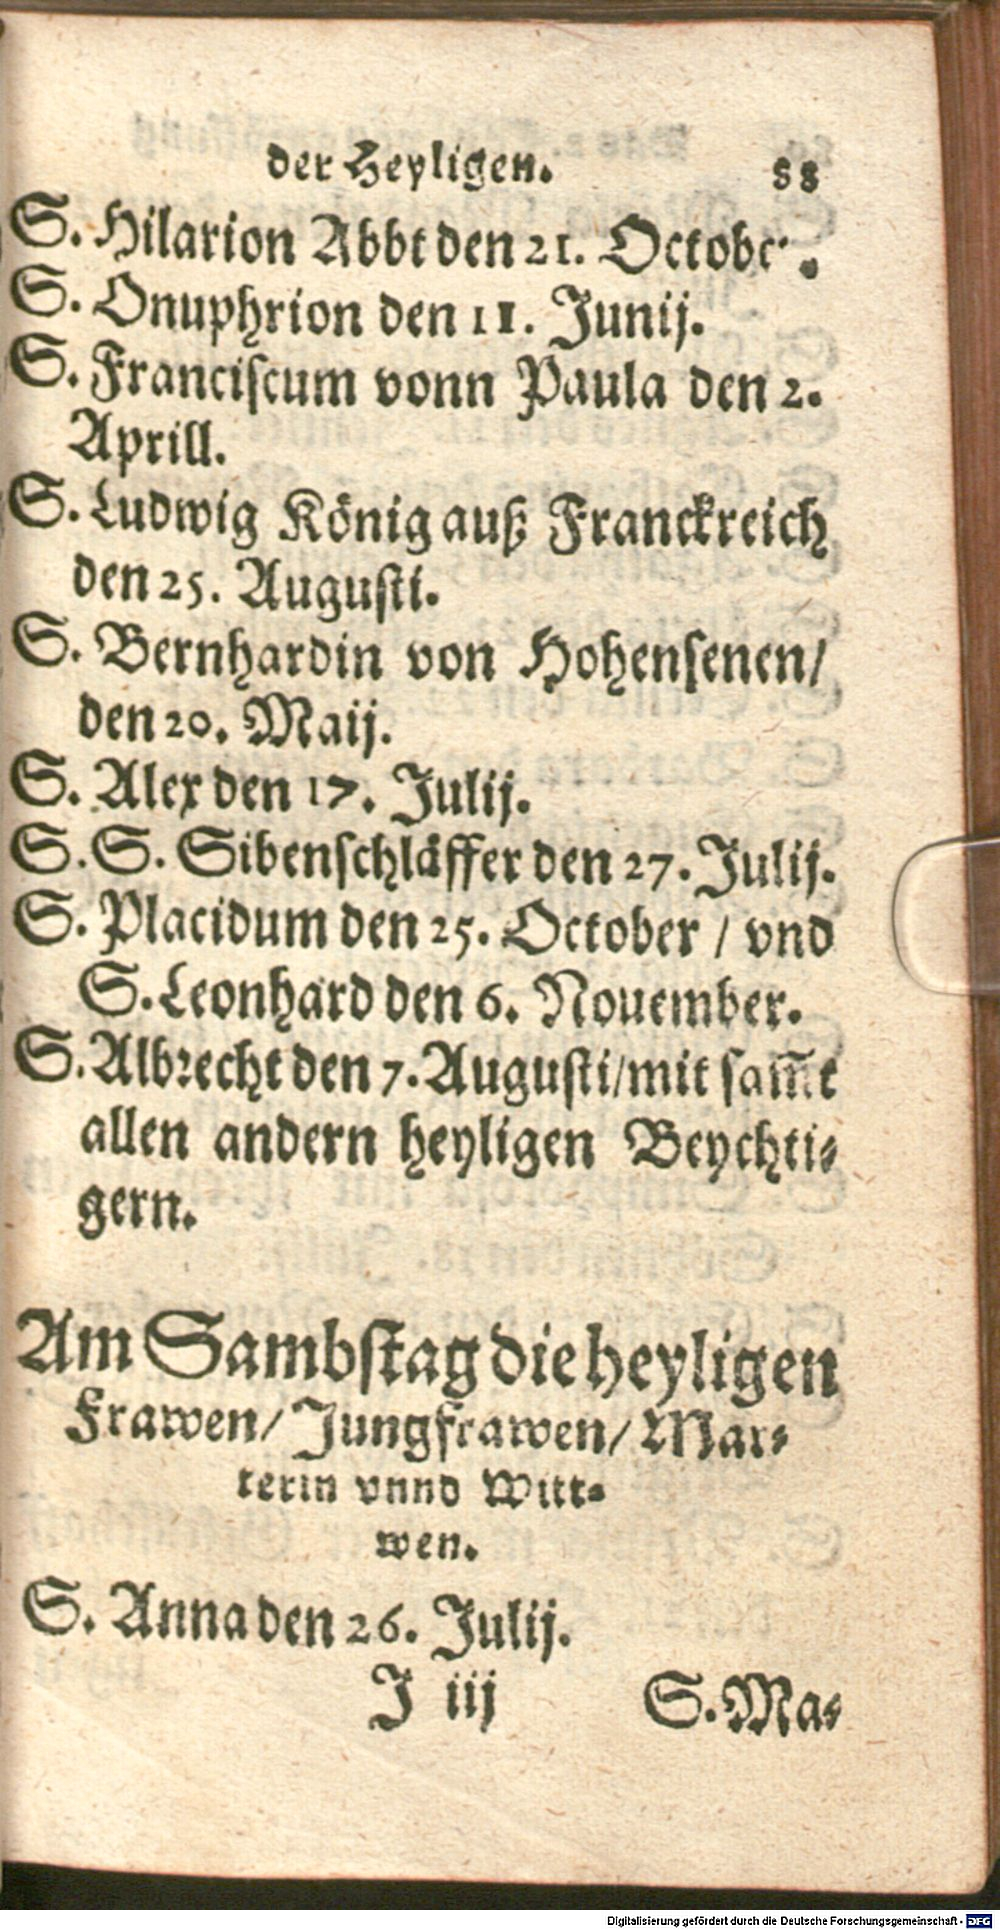 der Heyligen. 58
S. Hilarion Abbt den 21. October.
S. Onuphrion den 11. Junij.
S. Franciſcum vonn Paula den 2.
Aprill.
S. Ludwig König auß Franckreich
den 25. Auguſti.
S. Bernhardin von Hohenſenen/
den 20. Maij.
S. Alex den 17. Julij.
S. S. Sibenſchläffer den 27. Julij.
S. Placidum den 25. October / vnd
S. Leonhard den 6. Nouember.
S. Albrecht den 7. Auguſti/mit ſam̃t
allen andern heyligen Beychti-
gern.
Am Sambſtag die heyligen
Frawen/ Jungfrawen/ Mar-
terin vnnd Witt-
wen.
S. Anna den 26. Julij.
J iij S. Ma-
Digitalisierung gefördert durch die Deutsche Forschungsgemeinschaft - DFG